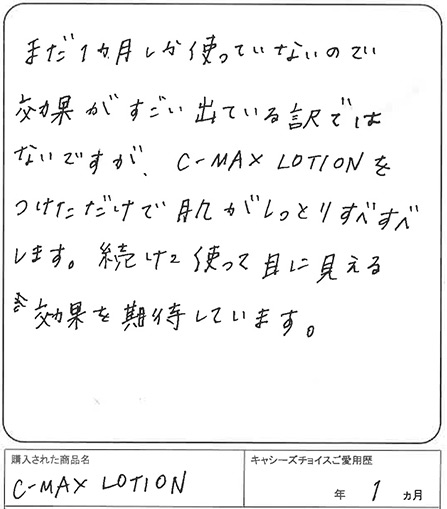 まだ1カ月しか使っていないので
効果がすごい出ている訳では
ないですが、C-MAX LOTIONを
つけただけで肌がしっとりすべすべ
します。続けて使って目に見える
効果を期待しています。
購入された商品名
C-MAX LOTION
キャシーズチョイスご愛用歴
年 1 ヵ月